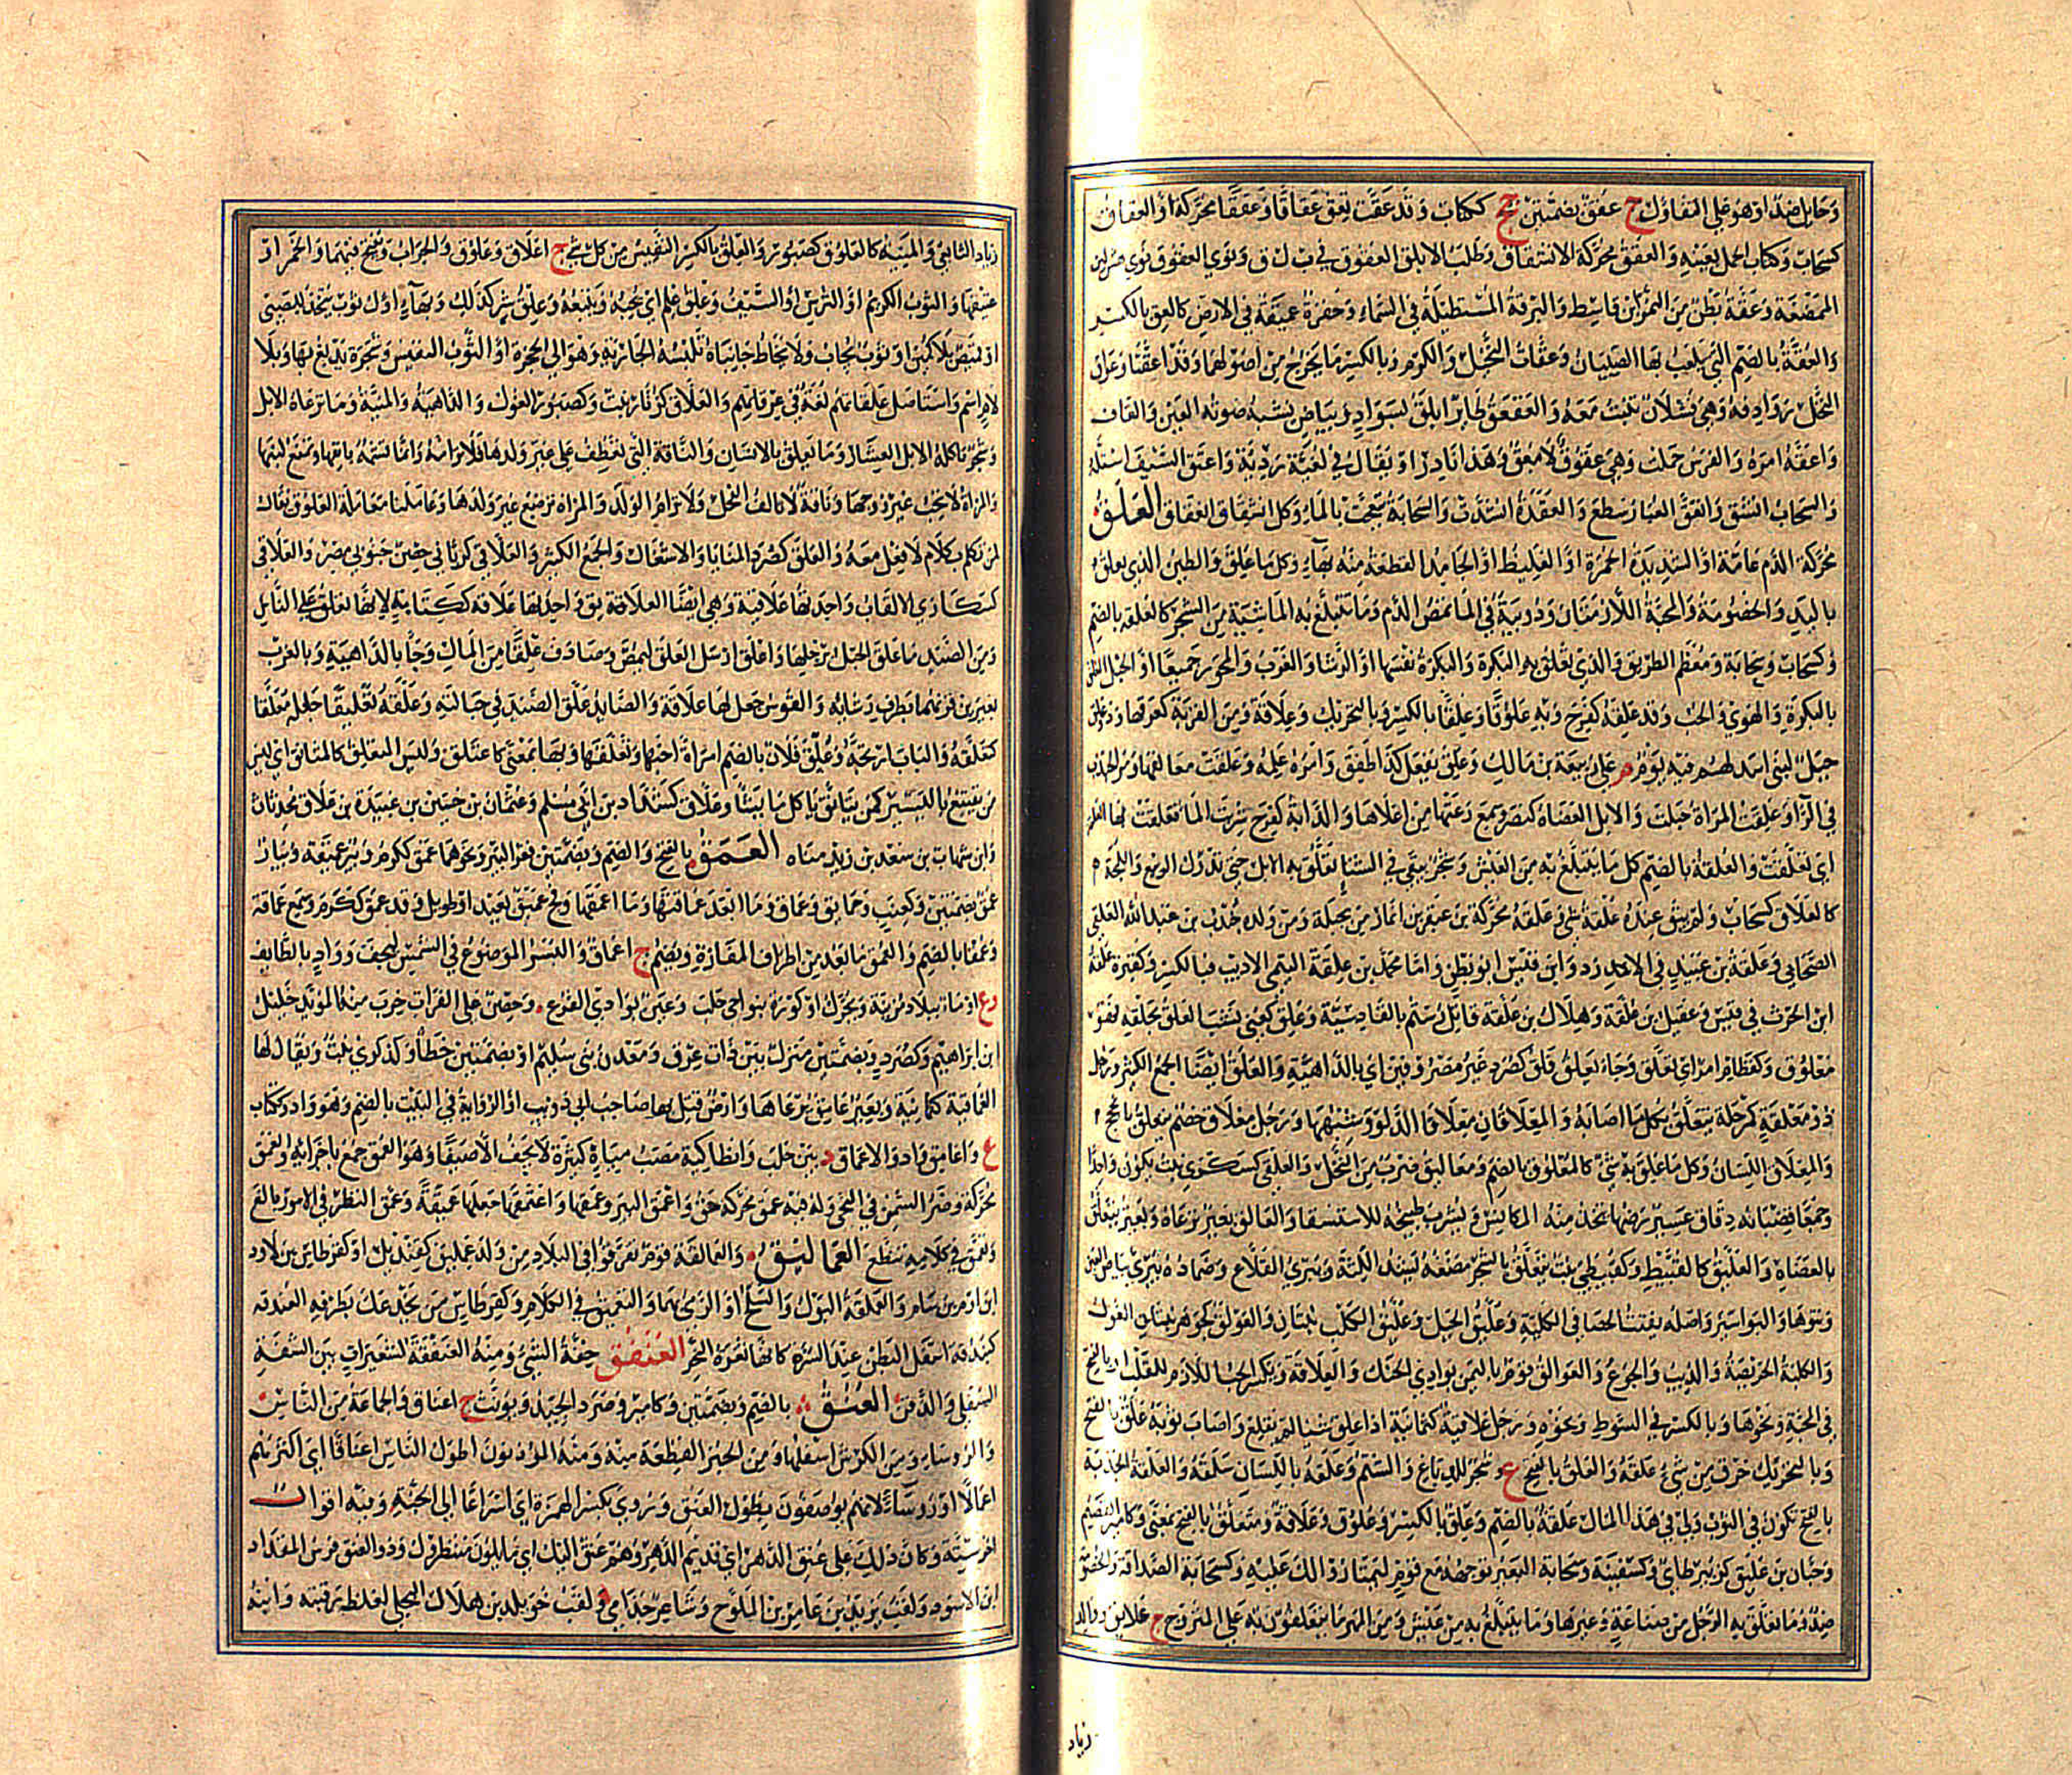 وحايل ضد او هو على التفاؤل ج عقق بضمتين جج ككتاب وقد عقت تعق عقاقا وعققا محركة او العقاق
كسحاب وككتاب الحمل بعينه والعقق محركة الانشقاق وطلب الابلق العقوق في ب ل ق ونوى العقوق نوى هش لين
الممضغة وعقة بطن من النمر بن قاسط والبرقة المستطيلة في السماء وحفرة عميقة في الارض كالعق بالكسر
والعقة بالضم التي يلعب بها الصبيان وعقان النخيل والكروم وبالكسر ما يخرج من اصولهما وقد اعقتا وعواق
النخل روادفه وهي فسلان تنبت معه والعقعق طاير ابلق بسواد وبياض يشبه صوته العين والقاف
واعقه امره والفرس حملت وهي عقوق لا معق وهذا نادر او يقال في لغية رديئة واعتق السيف استله
والسحاب انشق وانعق الغبار سطع والعقدة اشتدت والسحابة تبعجت بالماء وكل انشقاق انعقاق العلق
محركة الدم عامة او الشديد الحمرة او الغليظ او الجامد القطعة منه بهاء وكل ما علق والطين الذي يعلق
باليد والخصومة والمحبة اللازمتان ودويبة في الماء تمص الدم وما تتبلغ به الماشية من الشجر كالعلقة بالضم
وكسحاب وسحابة ومعظم الطريق والذي تعلق به البكرة والبكرة نفسها او الرشاء والغرب والمحور جميعا او الحبل المعلق
بالبكرة والهوى والحب وقد علقه كفرح وبه علوقا وعلقا بالكسر وبالتحريك وعلاقة ومن القربة كعرقها وذو علق
جبل لبني اسد لهم فيه يوم م على ربيعة بن مالك وعلق يفعل كذا طفق وامره علمه وعلقت معالقها وصر الجندب
في الراء وعلقت المراة حبلت والابل العضاه كنصر وسمع رعتها من اعلاها والدابة كفرح شربت الماء فعلقت بها العلقة
اي تعلقت والعلقة بالضم كل ما يتبلغ به من العيش وشجر يبقى في الشتاء تعلق به الابل حتى تدرك الربيع واللمجة
كالعلاق كسحاب ولم يبق عنده علقة شيء وعلقة محركة بن عبقر بن انمار من بجيلة ومن ولده جندب بن عبد الله العلقي
الصحابي وعلقة بن عبيد في الازد وابن قيس ابو بطن واما محمد بن علقة التيمي الاديب فبالكسر وكقبرة علقة
ابن الحرث في قيس وعقيل بن علقة وهلال بن علقة قاتل رستم بالقادسية وعلق كعني نشب العلق بحلقه فهو
معلوق وكقطام امر اي تعلق وجاء بعلق فلق كصرد غير مصروفين اي بالداهية والعلق ايضا الجمع الكثير ورجل
ذو معلقة كمرحلة يتعلق بكل ما اصابه والمعلاقان معلاقا الدلو وشبهها ورجل معلاق خصم يتعلق بالحجج
والمعلاق اللسان وكل ما علق به شيء كالمعلوق بالضم ومعاليق ضرب من النخل والعلقى كسكرى نبت يكون واحدا
وجمعا قضبانه دقاق عسير رضها يتخذ منه المكانس ويشرب طبيخه للاستسقاء والعالق بعير يرعاه وبعير يتعلق
بالعضاه والعليق كالقبيط وكقبيطي نبت يتعلق بالشجر مضغه يشد اللثة ويبري القلاع وضماده يبري بياض العين
ونتوها والبواسير واصله يفتت الحصا في الكلية وعليق الجبل وعليق الكلب نبتان والعولق كجوهر الغول
والكلبة الحريصة والذيب والجوع والعوالق قوم باليمن بوادي الحنك والعلاقة ويكسر الحب اللازم للقلب او بالفتح
في المحبة ونحوها وبالكسر في السوط ونحوه ورجل علاقية كثمانية اذا علق شيئا لم يقلع واصاب ثوبه علق بالفتح
وبالتحريك خرق من شيء علقه والعلق بالفتح ع وشجر للدباغ والشتم وعلقه بالسان سلقه والعلقة الجذبة
بالفتح تكون في الثوب ولي في هذا المال علقة بالضم وعلق بالكسر وعلوق وعلاقة ومتعلق بالفتح بمعنى وكامير القضيم
وحيان بن عليق كزبير طايي وكسفينة وسحابة البعير توجهه مع قوم ليمتاروا لك عليه وكسحابة الصداقة والخصومة
ضد وما تعلق به الرجل من صناعة وغيرها وما يتبلغ به من عيش ومن المهر ما يتعلقون به على المتزوج ج علايق ووالد
زياد
زياد التابعي والمنية كالعلوق كصبور والعلق بالكسر النفيس من كل شيء ج اعلاق وعلوق والجراب ويفتح فيهما والخمر او
عتيقها والثوب الكريم او الترس او السيف وعلق علم اي يحبه ويتبعه وعلق شر كذلك وبهاء اول ثوب يتخذ للصبي
او قميص بلا كمين او ثوب يجاب ولا يخاط جانباه تلبسه الجارية وهو الى الحجزة او الثوب النفيس وشجرة يدبغ بها وبلا
لام اسم واستاصل علقاتهم لغة في عرقاتهم والعلاق كزنار نبت وكصبور الغول والداهية والمنية وما ترعاه الابل
وشجر تاكله الابل العشار وما يعلق بالانسان والناقة التي تعطف على غير ولدها فلا ترامه وانما تشمه بانفها وتمنع لبنها
والمراة لا تحب غير زوجها وناقة لا تالف الفحل ولا ترام الولد والمراة ترضع غير ولدها وعاملنا معاملة العلوق يقال
لمن تكلم بكلام لا فعل معه والعلق كصرد المنايا والاشغال والجمع الكثير والعلاقي كربانى حصن جنوبي مصر والعلاقى
كسكارى الالقاب واحدتها علاقية وهي ايضا العلاقة بوق واحدتها علاقة ككتابة لانها تعلق على الناس
ومن الصيد ما علق الحبل برجليها واعلق ارسل العلق لتمص وصادف علقا من المال وجاء بالداهية وبالغرب
بعيرين قرنهما بطرف رشايه والقوس جعل لها علاقة والصايد علق الصيد في حبالته وعلقه تعليقا جعله معلقا
كتعلقه والباب ارتجه وعلق فلان بالضم امراة احبها وتعلقها وبها بمعنى كاعتلق وليس المتعلق كالمتانق اي ليس
من يقتنع باليسير كمن يتانق ياكل ما يشاء وعلاق كشداد بن ابي مسلم وعثمان بن حسين بن عبيدة بن علاق محدثان
وابن شهاب بن سعد بن زيد مناه العمق بالفتح والضم وبضمتين قعر البئر ونحوها عمق ككرم وبئر عميقة وبئار
عمق بضمتين وكعنب وعمايق وعماق وما ابعد عماقتها وما اعمقها وفج عميق بعيد او طويل وقد عمق ككرم وسمع عماقة
وعمقا بالضم والعمق ما بعد من اطراف المفازة ويضم ج اعماق والبسر الموضوع في الشمس ليجف وواد بالطايف
وع او ماء ببلاد مزينة ويحرك او كورة بنواحي حلب وعين بوادي الفرع وحصن على الفرات خرب منه المؤيد خليل
ابن ابراهيم وكصرد وبضمتين منزل بين ذات عرق ومعدن بني سليم او بضمتين خطا وكذكرى نبت ويقال لها
العماقية كثمانية وبعير عامق يرعاها وارض قتل بها صاحب ابي ذويب او الرواية في البيت بالضم وهو واد وككتاب
ع واعامق واد والاعماق د بين حلب وانطاكية مصب مياه كثيرة لا يجف الا صيفا وهو العمق جمع باجزائه والعمق
محركة وضر السمن في النحى وله فيه عمق محركة حق واعمق البير وعمقها واعتمقها جعلها عميقة وعمق النظر في الامور بالغ
وتعمق في كلامه تنطع العماليق والعمالقة قوم تفرقوا في البلاد من ولد عمليق كقنديل او كقرطاس بن لاوذ
ابن ارم بن سام والعملقة البول والسلح او الرمي بهما والتعميق في الكلام وكقرطاس من يخدعك بظرفه العندقة
كبندقه اسفل البطن عند السرة كانها نقرة النحر العنفق خفة الشيء ومنه العنفقة لشعيرات بين الشفة
السفلى والذقن العنق بالضم وبضمتين وكامير وصرد الجيد ويونث ج اعناق والجماعة من الناس
والروساء ومن الكرش اسفلها ومن الخبز القطعة منه ومنه المؤذنون اطول الناس اعناقا اي اكثرهم
اعمالا او روساء لانهم يوصفون بطول العنق وروى بكسر الهمزة اي اسراعا الى الجنة وفيه اقوال
اخر ستة وكان ذلك على عنق الدهر اي قديم الدهر وهم عنق اليك اي مايلون منتظروك وذو العنق فرس المقداد
ابن الاسود ولقب يزيد بن عامر بن الملوح وشاعر جذامي ولقب خويلد بن هلال البجلي لغلظ رقبته وابنه